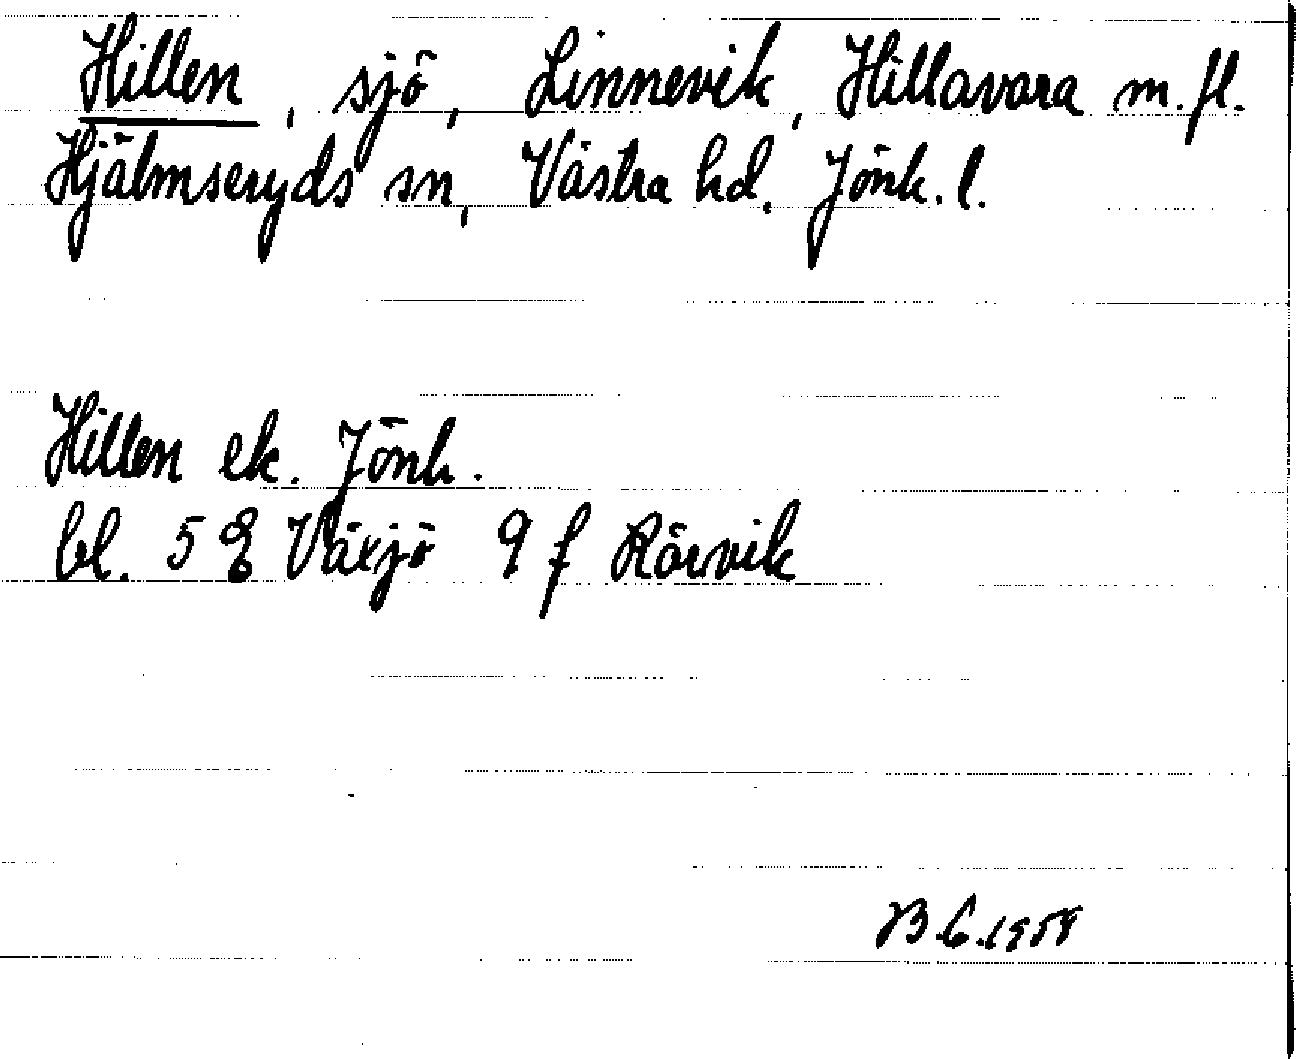 Hillen, sjö, Linnevik, Hillavara m.fl.
Hjälmseryds sn, Västra hd. Jönk.l.
Hillen ek. Jönk.
bl. 5 E Växjö 9 f Rörvik